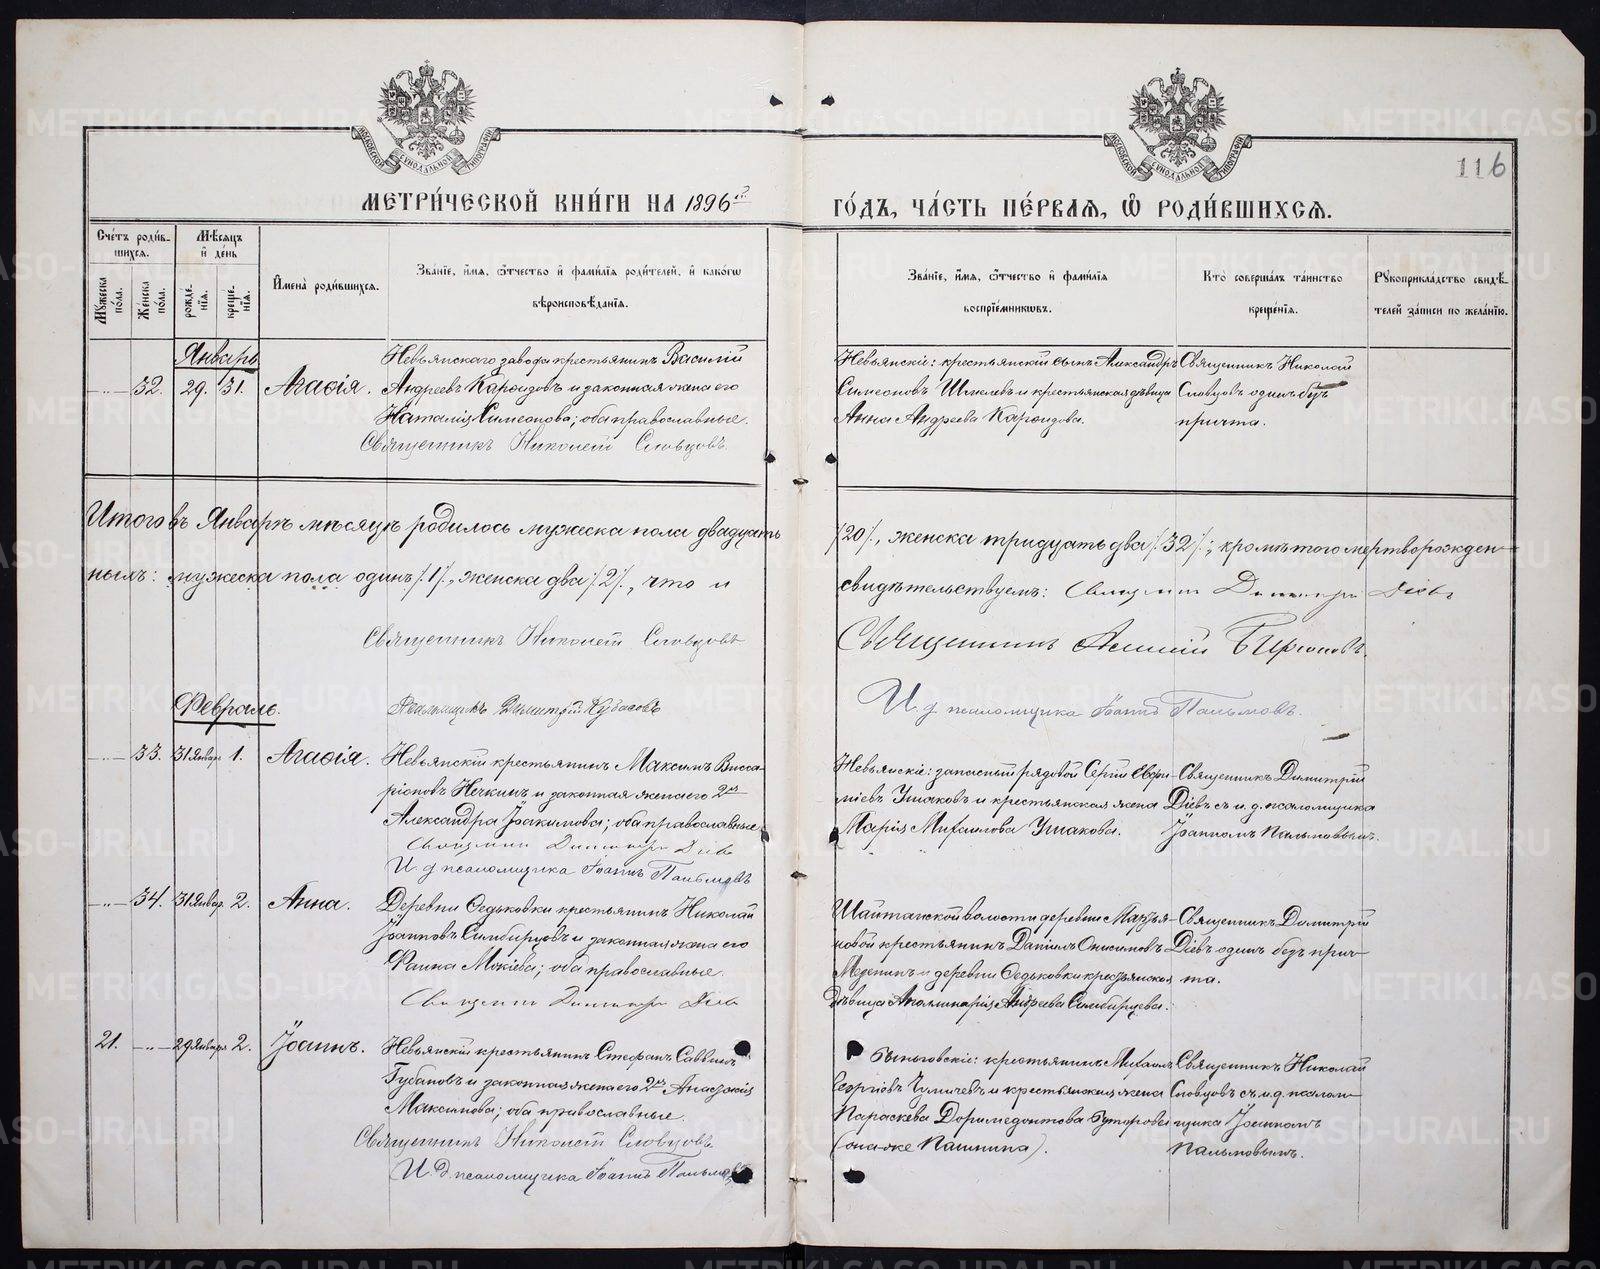 116
МЕТРИ́ЧЕСКОЙ КНИ́ГИ НА 1896й
ГО́ДЪ, ЧА́СТЬ ПЕ́РВАЯ, Ѽ РОДИ́ВШИХСѦ.
Сче́тъ роди́в-
шихся.
Мѣ́сяцъ
и҆ де́нь
Мꙋжеска по́ла.
Же́нска по́ла.
рожде́-
нїѧ.
креще́-
нїѧ.
И҆мена̀ роди́вшихсѧ.
Зва́нїе, и҆́мѧ, ѻ҆́тчество и҆ фамилїѧ роди́телей, и҆ како́гѡ
вѣроисповѣ́данїѧ.
Зва́нїе, и҆́мѧ, ѻ҆́тчество и҆ фами́лїѧ
воспрїе́мникѡвъ.
Кто̀ соверша́лъ та́инство
креще́нїѧ.
Рꙋкоприкла́дство свидѣ́-
телей за́писи по жела́нїю.
Январь
32. 29. 31. Агаѳія.
Невьянскаго завода крестьянинъ Василій
Андреевъ Карфидовъ и законная жена его
Наталія Симеонова; оба православные.
Священникъ Николай Словцовъ.
Невьянскіе: крестьянскій сынъ Александръ
Симеоновъ Шмелевъ и крестьянская дѣвица
Анна Андреева Карфидова.
Священникъ Николай
Словцовъ одинъ безъ
причта.
Итого въ Январѣ мѣсяцѣ родилось мужеска пола двадцать
/20/., женска тридцать два /32/.; кромѣ того мертворожден-
нымъ: мужеска пола одинъ /1/., женска два /2/., что и
свидѣтельствуемъ: Священникъ Димитрій Діевъ
Священникъ Николай Словцовъ
Священникъ Бирюковъ.
Псаломщикъ Димитрій Кубасовъ
И. д. псаломщика Іоаннъ Пальмовъ.
Февраль.
33. 31 Январ. 1. Агаѳія.
Невьянскій крестьянинъ Максимъ Висса-
ріоновъ Нечкинъ и законная жена его 2мъ
Александра Іоакимова; оба православные
Священникъ Димитрій Діевъ
И. д. псаломщика Іоаннъ Пальмовъ
Невьянскіе: запасный рядовой Сергій Евфи-
міевъ Ушаковъ и крестьянская жена
Марія Михаилова Ушакова.
Священникъ Димитрій
Діевъ съ и. д. псаломщика
Іоанномъ Пальмовымъ.
34. 31 Январ. 2. Анна.
Деревни Ѳедьковки крестьянинъ Николай
Іоанновъ Симбирцовъ и законная жена его
Фаина Мокіева; оба православные.
Священникъ Димитрій Діевъ
Шайтанской волости деревни
новой крестьянинъ Даніилъ Онисимовъ
Мезенинъ и деревни Ѳедьковки крестьянская
дѣвица Аполлинарія Андреева Симбирцева.
Священникъ Димитрій
Діевъ одинъ безъ прич-
та.
21. 29 Января 2. Іоаннъ.
Невьянскій крестьянинъ Стефанъ Саввинъ
Губановъ и законная жена его 2мъ Анастасія
Максимова; оба православные.
Священникъ Николай Словцовъ
И. д. псаломщика Іоаннъ Пальмовъ
Быньговскіе: крестьянинъ Михаилъ
Георгіевъ и крестьянская жена
Параскева Доримедонтова
(она же Пашнина).
Священникъ Николай
Словцовъ съ и. д. псалом-
щика Іоанномъ
Пальмовымъ.
METRIKI.GASO-URAL.RU